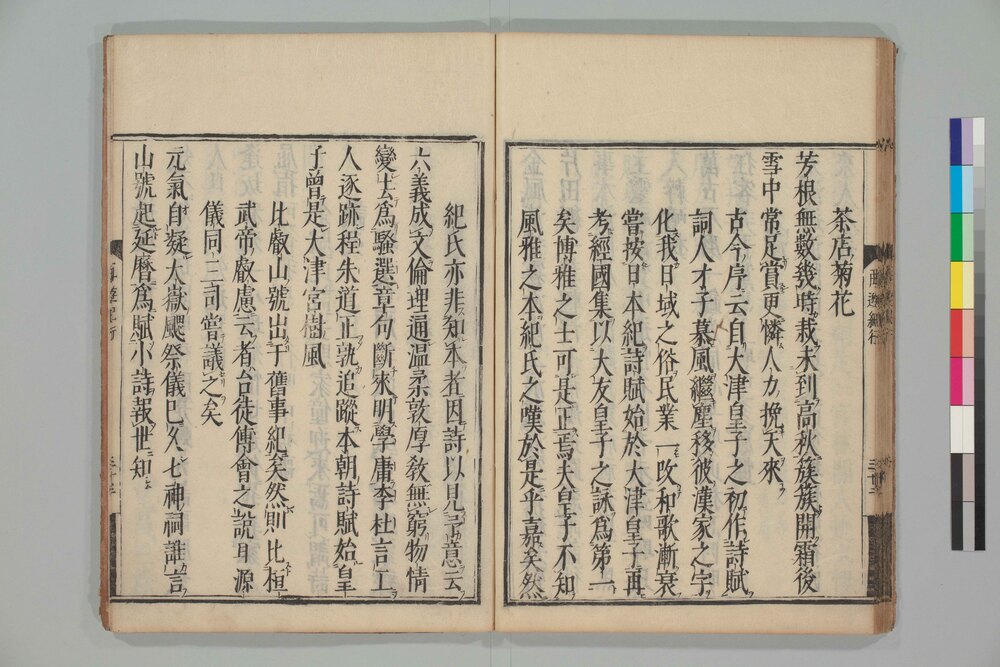 茶店菊花
芳根無數幾時栽未到高秋簇簇開霜後
雪中常足賞更憐人力挽天來
古今序云自大津皇子之初作詩賦
詞人才子慕風繼塵移彼漢家之字
化我日域之俗民業一改和歌漸衰
嘗按日本紀詩賦始於大津皇子再
考經國集以大友皇子之詠為第一
矣博雅之士可是正焉夫皇子不知
風雅之本紀氏之嘆於是乎嘉矣然
紀氏亦非知本者因詩以見予意云
六義成文倫理通溫柔敦厚敎無窮物情
變去爲騷選章句斷來明學庸李杜言工
人逐跡程朱道正孰追蹤本朝詩賦始皇
子曾是大津宮樹風
比叡山號出于舊事紀矣然則比桓
武帝叡慮云者台徒傅會之說耳源
儀同三司嘗議之矣
元氣自凝大嶽颺祭儀已久七神祠誰言
山號起延曆爲賦小詩報世知